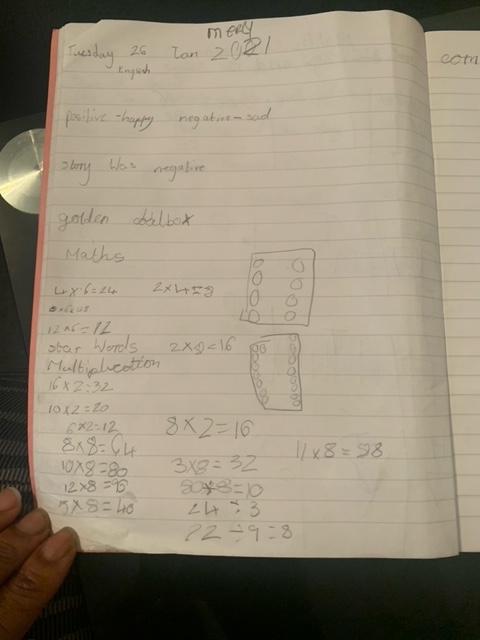 MERY
Tuesday 26 Jan 2021
English
positive - happy negative - sad
story was negative
golden
Maths
4 x 6 = 24 2 x 4 = 8
12 x 6 = 12
star words 2 x 8 = 16
Multiplication
16 x 2 = 32
10 x 2 = 20
6 x 2 = 12 8 x 2 = 16
8 x 8 = 64 11 x 8 = 88
10 x 8 = 80 3 x 8 = 32
12 x 8 = 96 = 10
5 x 8 = 40 24 ÷ 3
72 ÷ 9 = 8
com